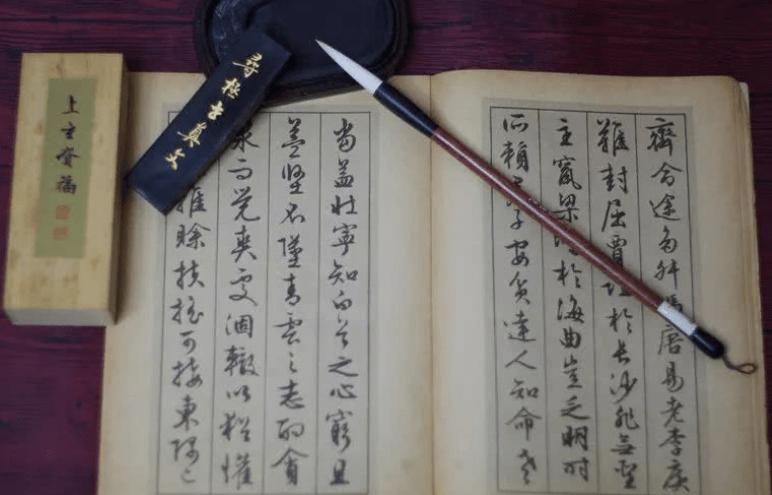 齊命途多舛馮唐易老李廣
難封屈賈誼於長沙非無聖
主竄梁於海曲豈乏明時
所賴子安貧達人知命老
當益壯寧知白首之心窮且
益堅不墜青雲之志酌貪
泉而覺爽處涸轍以猶懽
雖賒扶搖可接東隅已
尋極真文
上資福